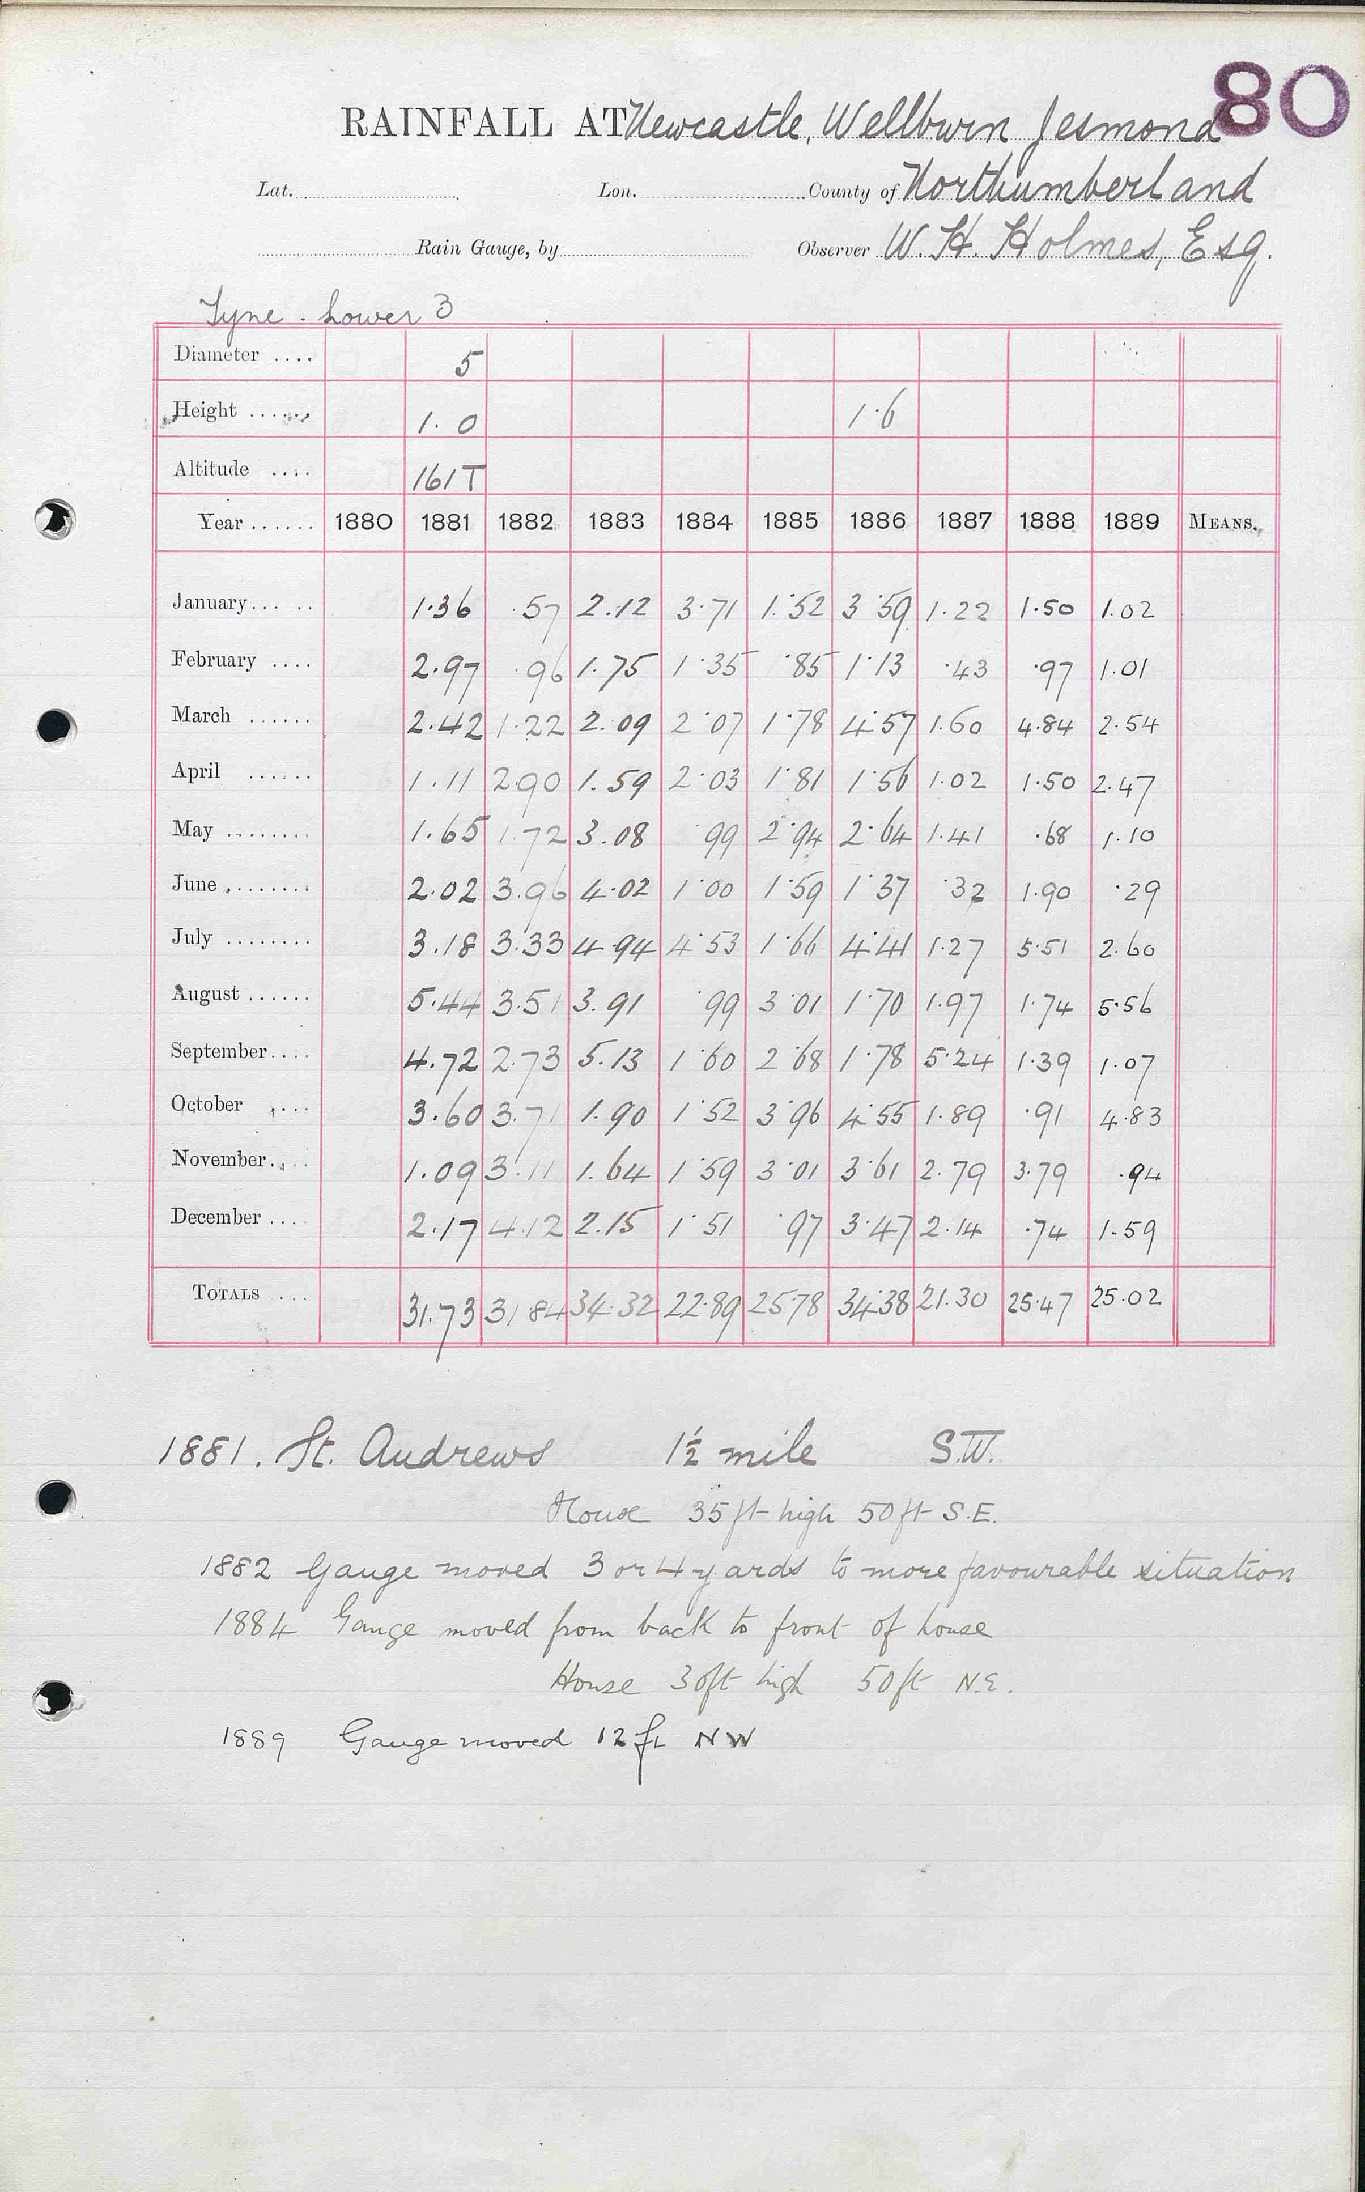 80
RAINFALL AT Newcastle, Wellburn Jesmond
Lat. Lon. County of Northumberland
Rain Gauge, by Observer W. H. Holmes, Esq.
Tyne . Lower 3
Diameter .... 5
Height ...... 1. 0 1.6
Altitude .... 161T
Year ...... 1880 1881 1882 1883 1884 1885 1886 1887 1888 1889 MEANS.
January ..... 1.36 .57 2.12 3.71 1.52 3.59 1.22 1.50 1.02
February .... 2.97 .96 1.75 1.35 .85 1.13 .43 .97 1.01
March ...... 2.42 1.22 2.09 2.07 1.78 4.57 1.60 4.84 2.54
April ...... 1.11 2.90 1.59 2.03 1.81 1.56 1.02 1.50 2.47
May ........ 1.65 1.72 3.08 .99 2.94 2.64 1.41 .68 1.10
June ........ 2.02 3.96 4.02 1.00 1.59 1.37 .32 1.90 .29
July ........ 3.18 3.33 4.94 4.53 1.66 4.41 1.27 5.51 2.60
August ...... 5.44 3.51 3.91 .99 3.01 1.70 1.97 1.74 5.56
September .... 4.72 2.73 5.13 1.60 2.68 1.78 5.24 1.39 1.07
October .... 3.60 3.71 1.90 1.52 3.96 4.55 1.89 .91 4.83
November .... 1.09 3.11 1.64 1.59 3.01 3.61 2.79 3.79 .94
December .... 2.17 4.12 2.15 1.51 .97 3.47 2.14 .74 1.59
TOTALS .... 31.73 31 84 34.32 22.89 25.78 34.38 21.30 25.47 25.02
1881. St. Andrews 1½ mile S.W.
House 35 ft high 50 ft S.E.
1882 Gauge moved 3 or 4 yards to more favourable situation
1884 Gauge moved from back to front of house
House 30ft high 50ft N.E.
1889 Gauge moved 12 ft NW